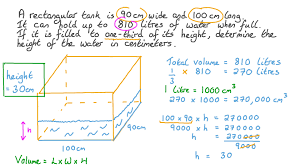 A rectangular tank is 90cm wide and 100cm long.
It can hold up to 810 litres of water when full.
If it is filled to one-third of its height, determine the
height of the water in centimeters.
height
= 30cm
h
100cm
90cm
Volume = L×W×H
Total volume = 810 litres
1/3 × 810 = 270 litres
1 litre = 1000 cm³
270 × 1000 = 270,000 cm³
100 × 90 × h = 270000
9000 × h = 270000
h = 270000/9000
h = 30